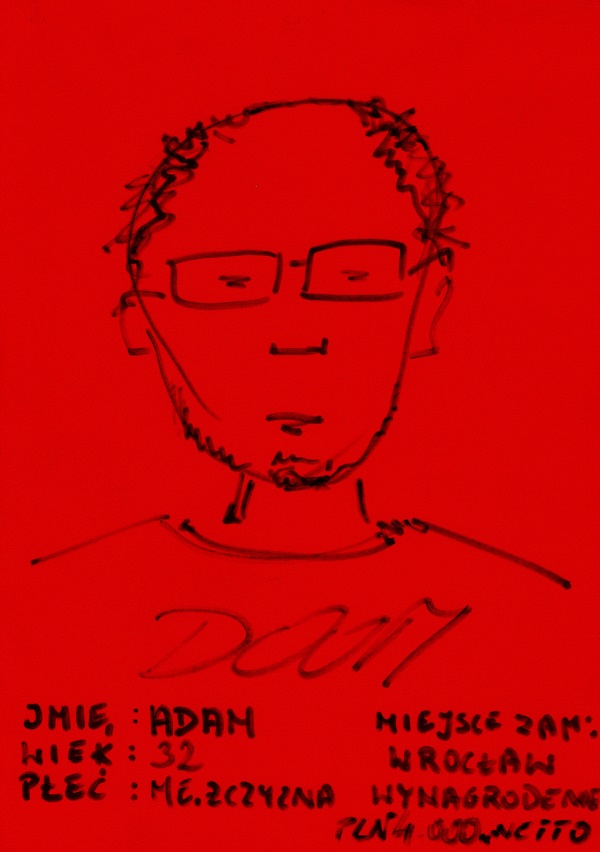 DOOM
IMIĘ : ADAM
WIEK : 32
PŁEĆ : MĘŻCZYZNA
MIEJSCE ZAM.:
WROCŁAW
WYNAGRODZENIE
PLN NETTO